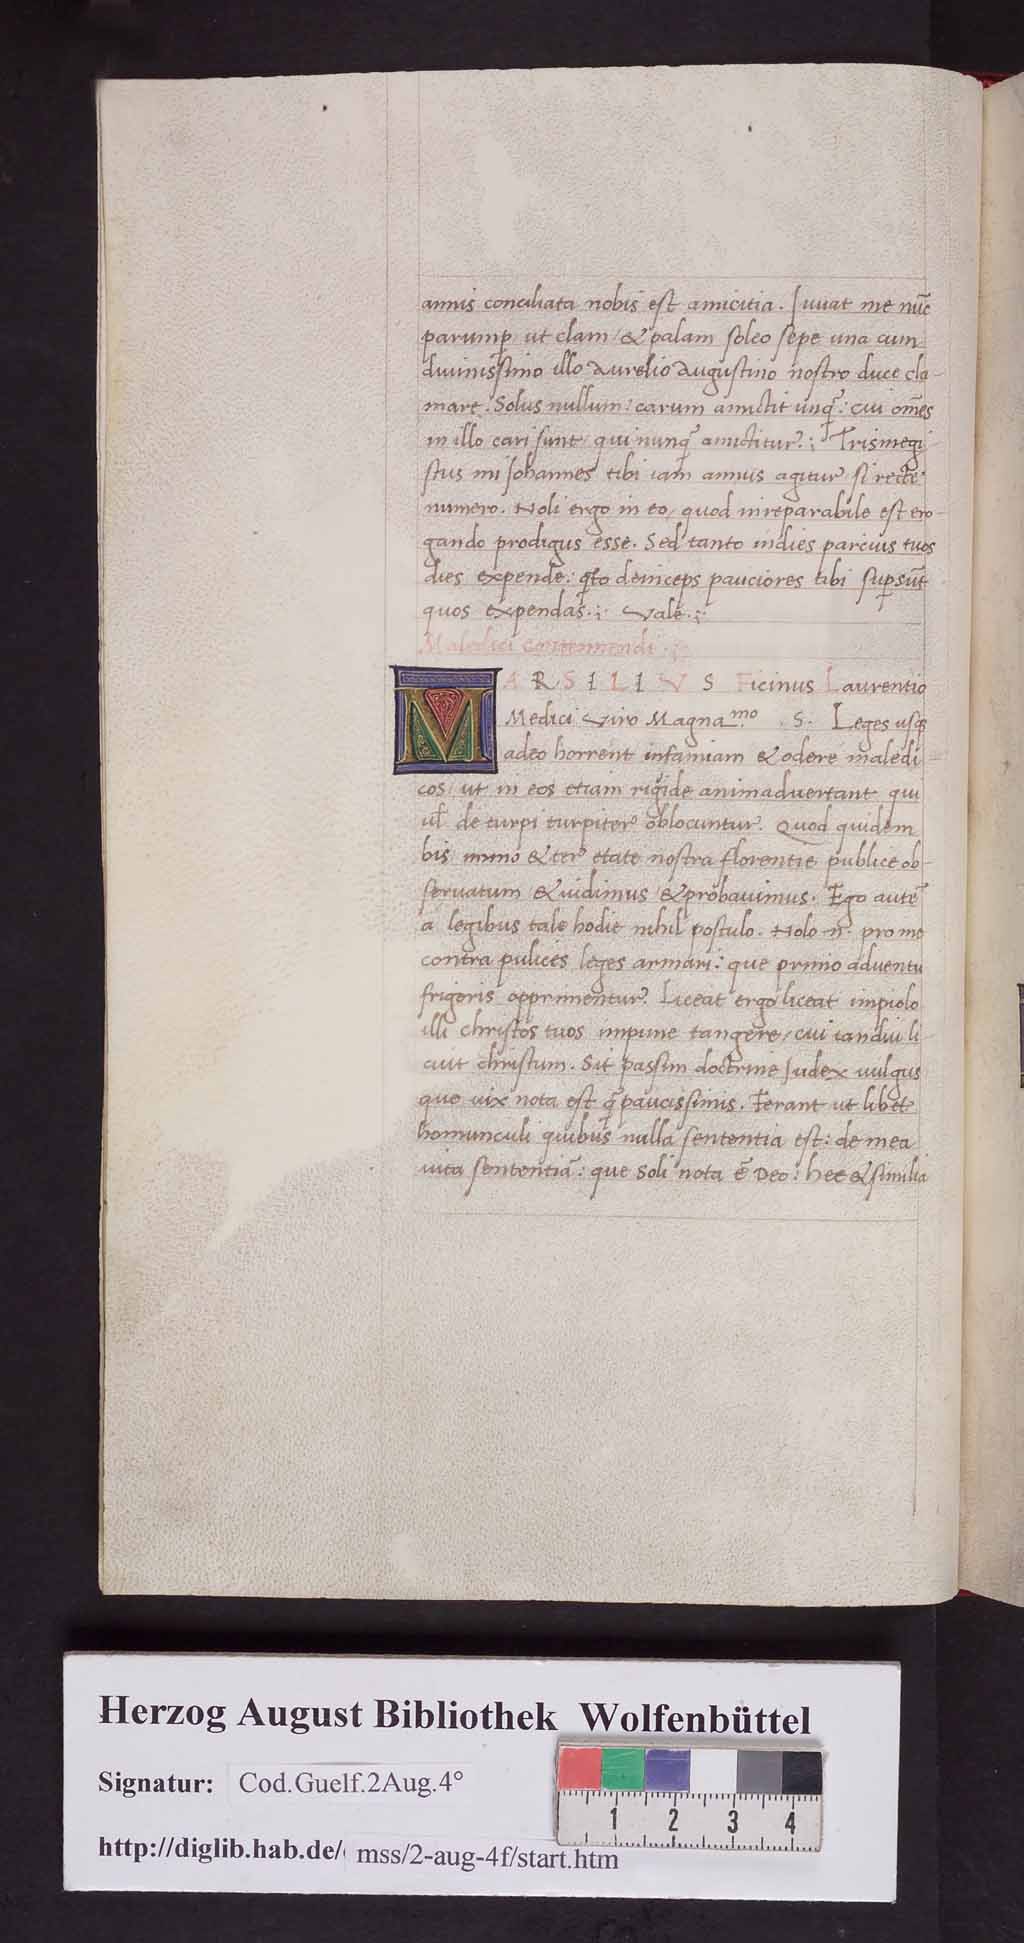 annis conciliata nobis est amicitia. Juuat me nūc
parump̱ ut clam / & palam soleo sepe una cum
diuinissimo illo Aurelio Augustino nostro duce cla-
mare. Solus nullum: carum amictit unq̄: cui om̄es
in illo cari sunt / qui nunq̄ amictitur?: Trismegi-
stus mi Johannes tibi iam annus agitur si recte
numero. Noli ergo in eo / quod inreparabile est ero-
gando prodigus esse. Sed tanto indies parcius tuos
dies expende: q̄to deinceps pauciores tibi sup̱sūt
quos expendas.: Vale.:
Maledici contemnendi.:
MARSILIVS Ficinus Laurentio
Medici Viro Magna.mo .S. Leges usq̨
adeo horrent infamiam & odere maledi-
cos / ut in eos etiam rigide animaduertant qui
ul̄ de turpi turpiter oblocuntur. Quod quidem
bis immo & ter etate nostra florentie publice ob-
seruatum & uidimus / & probauimus. Ego autē
a legibus tale hodie nihil postulo. Nolo .n. pro me
contra pulices leges armari: que primo aduentu
frigoris opprimentur. Liceat ergo liceat impiolo
illi christos tuos impune tangere / cui tandiu li-
cuit christum. Sit passim doctrine Judex uulgus
que uix nota est q̄ paucissimis. Ferant ut libet
homunculi quibus nulla sententia est: de mea
uita sententiā: que Soli nota ē Deo: hec & similia
Herzog August Bibliothek Wolfenbüttel
Signatur: Cod.Guelf.2Aug.4°
http://diglib.hab.de/ mss/2-aug-4f/start.htm
1 2 3 4